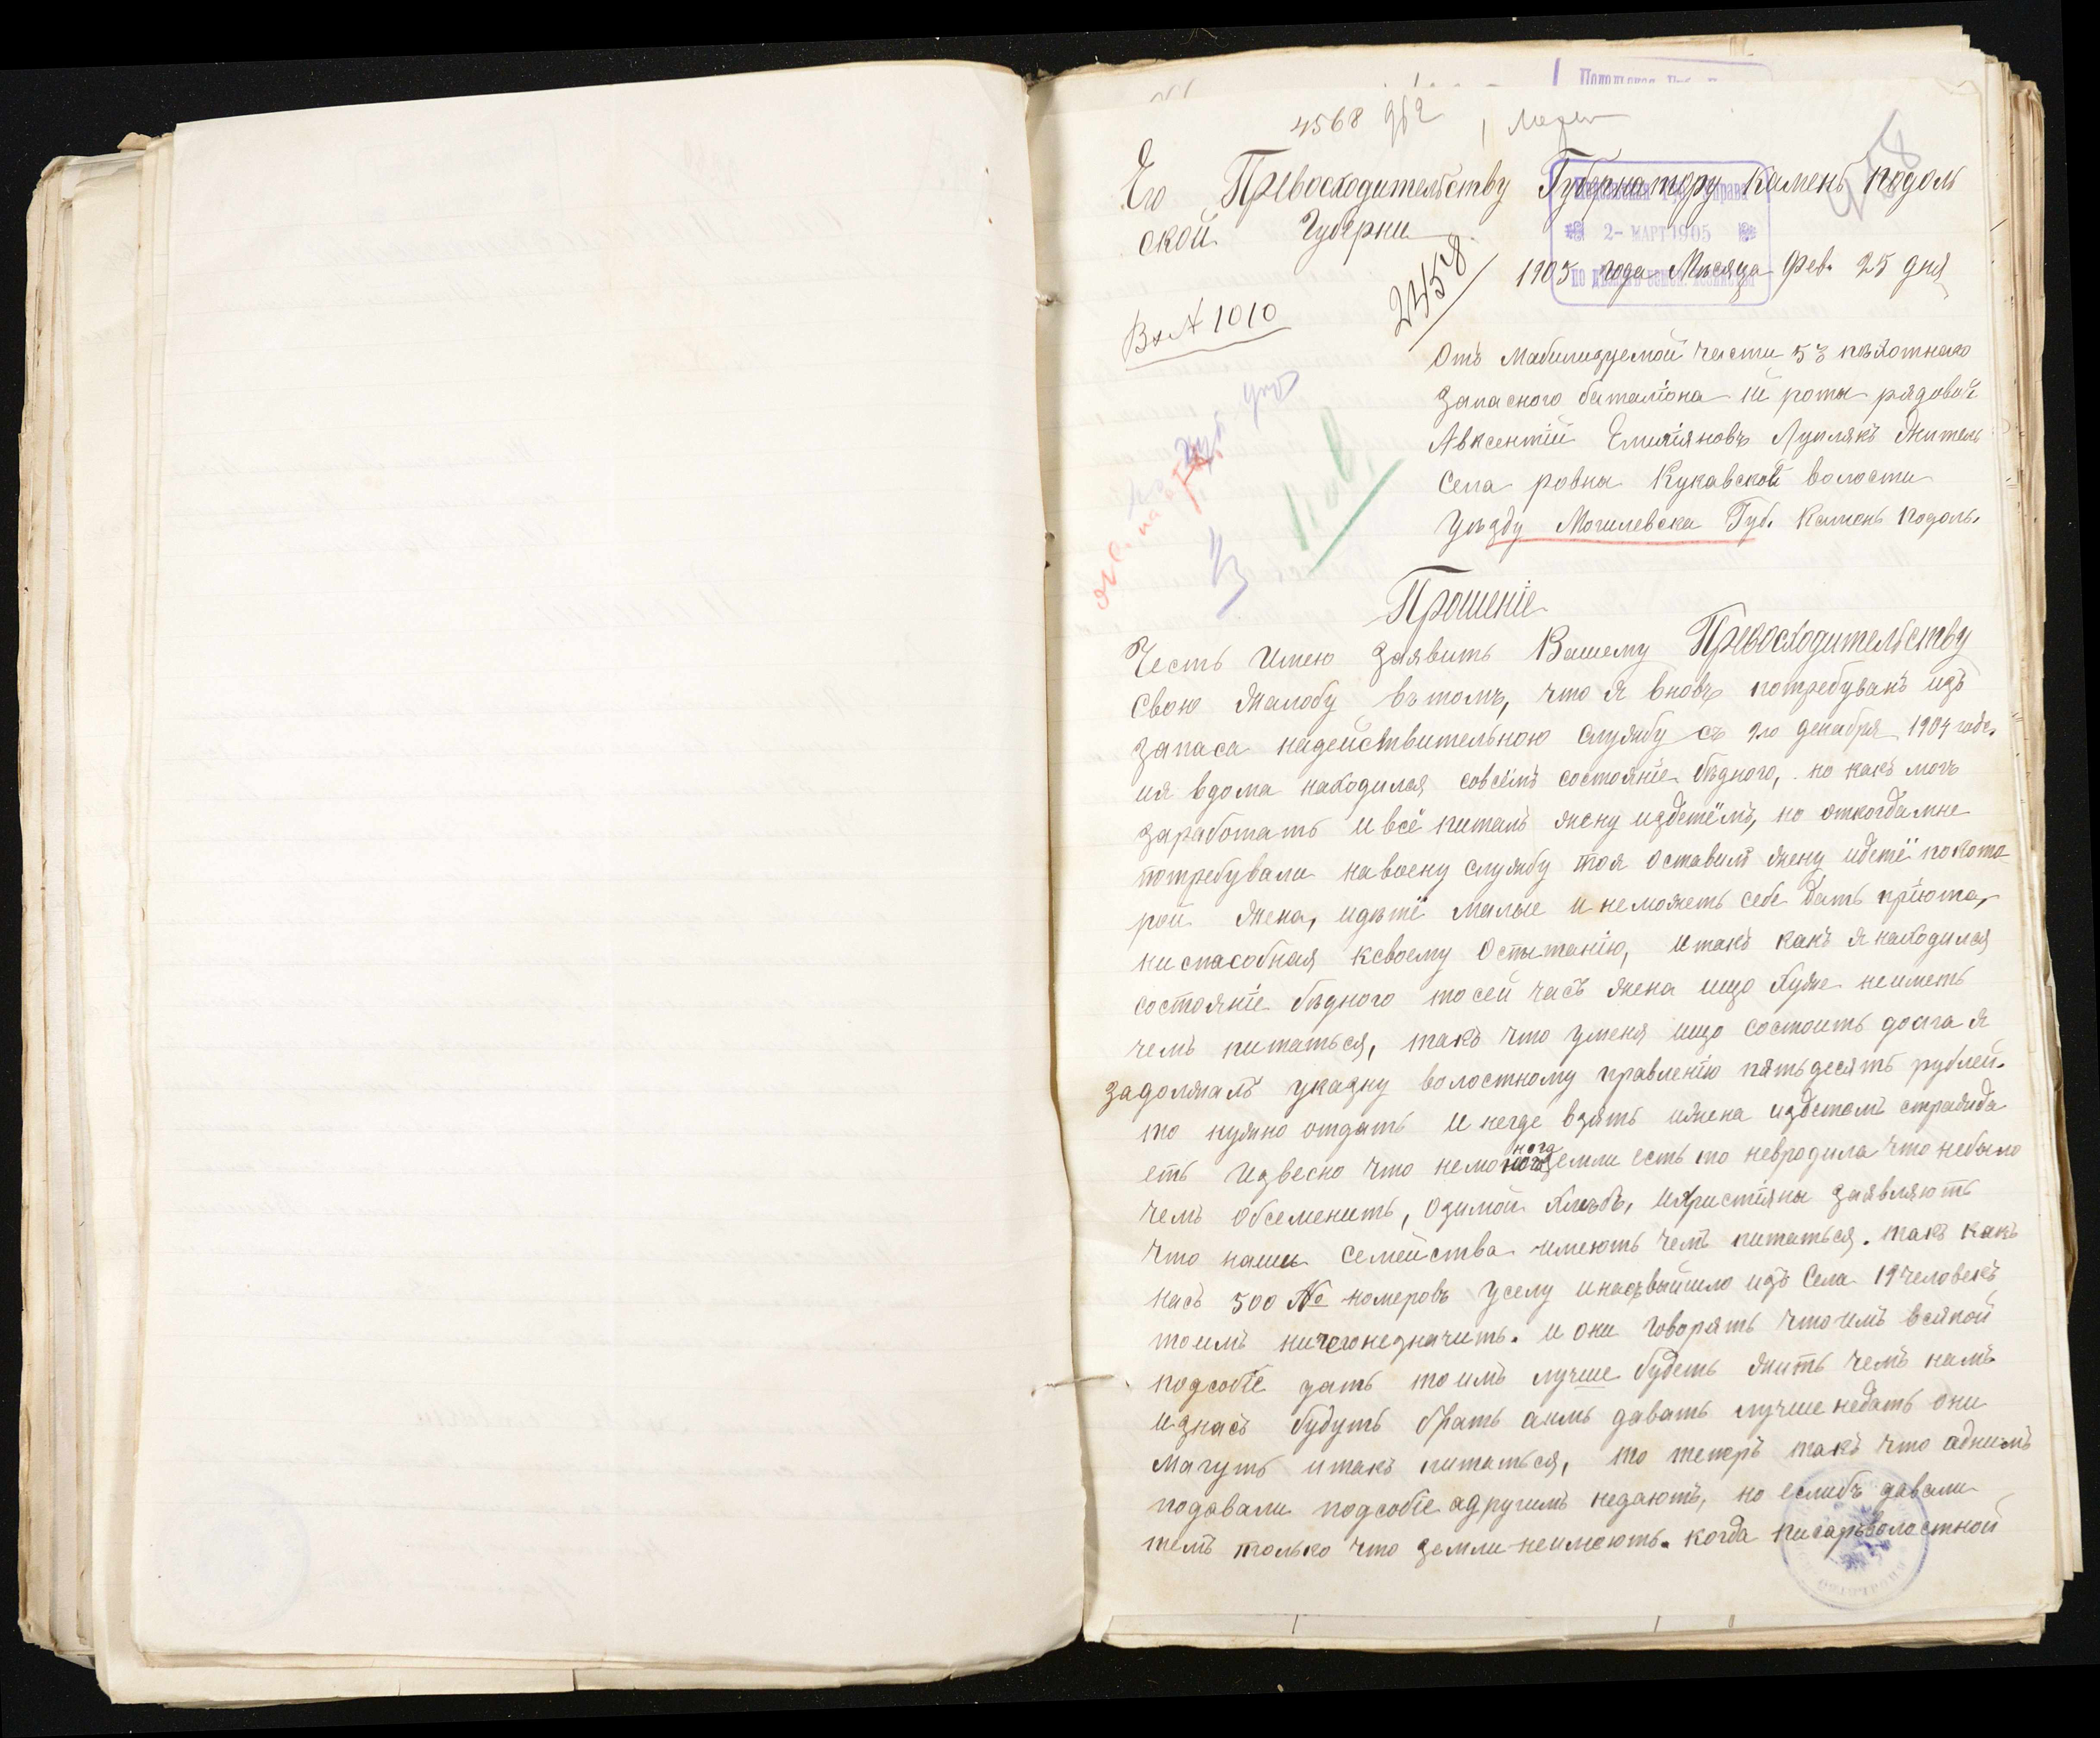 4568
Его Превосходительству Губернатору Камень Подоль
ской Губерни
2- МАРТ 1905
1905 года Месяца Фев. 25 дня
2458
Вх № 1010
Отъ мабилизуемой части 53 пехотнаго
запасного баталіона й роты рядовой
Авксентій Емиліяновъ Луплякъ житель
Села ровна Кукавской волости
Уѣзду Могилевска Губ. Камень подоль.
Прошеніе
Честь имею заявить Вашему Превосходительству
свою жалобу въ томъ, что я вновъ потребуванъ изъ
запаса надействительною службу съ 2го декабря 1904 года.
ия вдома находился совсемъ состояніе бѣдного, но какъ могъ
заработать и всё питалъ жену издетёмъ, но откогда мне
потребували навоену службу тоя оставилъ жену идетё покото
рой жена, идѣтё малые и неможеть себе дать пріюта,
ниспасобная ксвоему Оспытанію, итакъ какъ я находился
состояніе бѣдного то сей часъ жена ищо хуже неиметь
чемъ питаться, такъ что уменя ищо состоить долга я
задолжалъ указну волостному правленію пятьдесятъ рублей.
то нужно отдать и негде взять ижена издетомъ страдида
еть Извесно что немо нога земли есть то невродила что небыло
чемъ обсеменить, озимой хлѣбъ, ихристіяны заявляють
что наши семейства имеють чемъ питаться. такъ какъ
насъ 500 № номеровъ уселу инасъ выйшло изъ Села 19 человекъ
тоимъ ничегонезначить. и они говорять чтоимъ всякой
подсобіе дать тоимъ лучше будеть жить чемъ намъ
изнасъ будуть брать аимъ давать лучше недать они
магуть итакъ питаться, то теперъ такъ что аднимъ
подавали подсобіе адругимъ недають, но еслибъ давали
темъ только что земли неимеють. когда писарь волостной